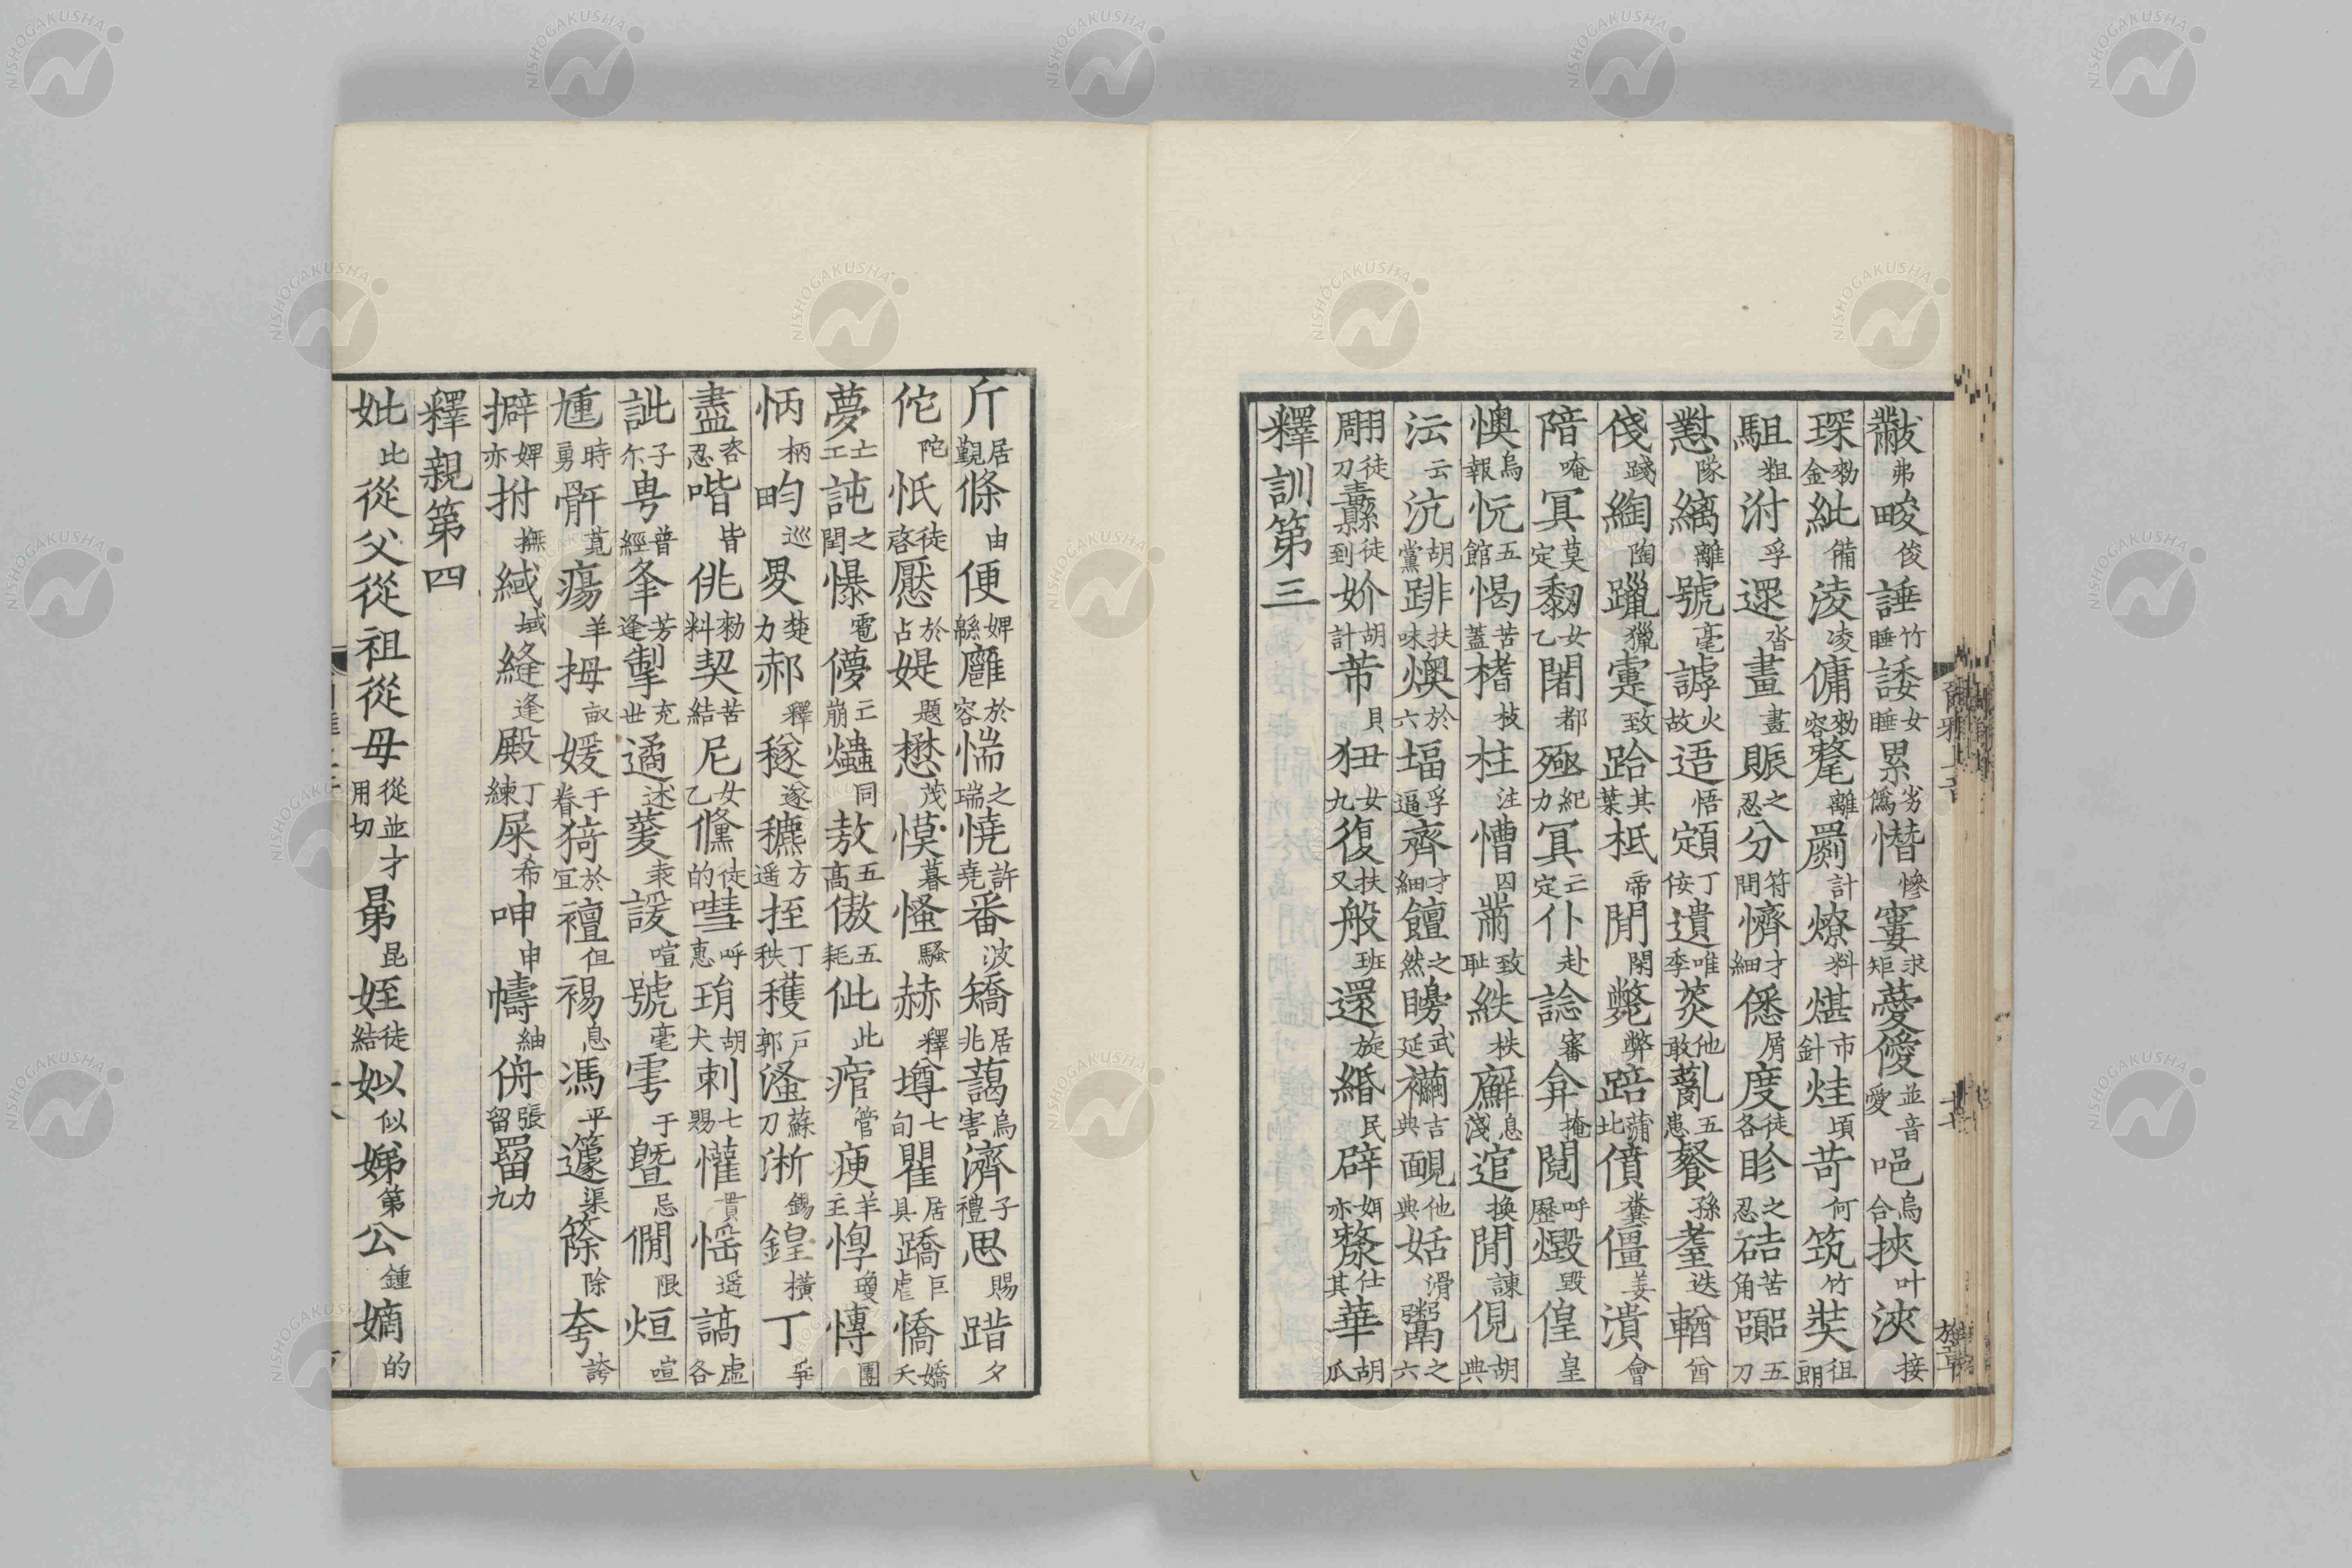 黻弗畯俊諈竹睡諉女睡累劣僞憯慘寠求矩薆僾並音愛唈烏合挾叶浹接
琛勑金紕備淩凌傭勑容氂離罽計燎料煁市針烓頃苛何筑竹奘徂朗
駔粗泭孚遝沓畫畫賑之忍分符問懠才細僁屑度徒各眕之忍硈苦角𧭈五刀
懟隊縭離號毫謼火故逜悟顁丁佞遺唯季菼他敢薍五患餐孫耋迭輶酋
俴踐綯陶躐獵疐致跲其葉柢帝閒閑斃弊踣蒲北僨糞僵姜潰會
陪唵冥莫定䵒女乙闍都殛紀力冥亡定仆赴諗審弇掩鬩呼歷燬毀偟皇
懊烏報忨五館愒苦蓋榰枝柱注慒囚黹致耻紩秩廯息淺逭換閒諫俔胡典
沄云沆胡黨跳扶味燠於六塕孚逼齊才細饘之然矊武延襺吉典靦他典姡滑鬻之六
翢徒刀纛徒到妎胡計芾貝狃女九復扶又般班還旋緡民辟婢亦漦仕其華胡瓜
釋訓第三
斤居覲條由便婢緜廱於容惴之瑞憢許堯番波矯居兆藹烏害濟子禮思賜踖夕
佗陀忯徒啓懕於占媞題懋茂慔暮慅騷赫釋墫七旬瞿居具蹻巨虐憍嬌夭
夢亡工訰之閏懪雹儚亡崩爞同敖五高傲五耗佌此痯管瘐羊主惸瓊慱團
怲柄畇巡畟楚力郝釋穟遂穮方遥挃丁秩穫戶郭溞蘇刀淅錫鍠橫丁爭
盡咨忍喈皆佻勑料契苦結尼女乙儵徒的嘒呼惠琄胡犬刺七賜懽貫愮遥謞虛各
訿子尒甹普經夆芳逢掣充世遹述蔆𦼮諼喧號毫雩于曁忌僩限烜喧
尰時勇骭莧瘍羊拇畝媛于眷猗於宜襢但裼息馮平籧渠篨除夸誇
擗婢亦拊撫緎域縫逢殿丁練屎希呻申幬紬侜張留罶力九
釋親第四
妣比從父從祖從母從並才用切晜昆姪徒結姒似娣第公鍾嫡的